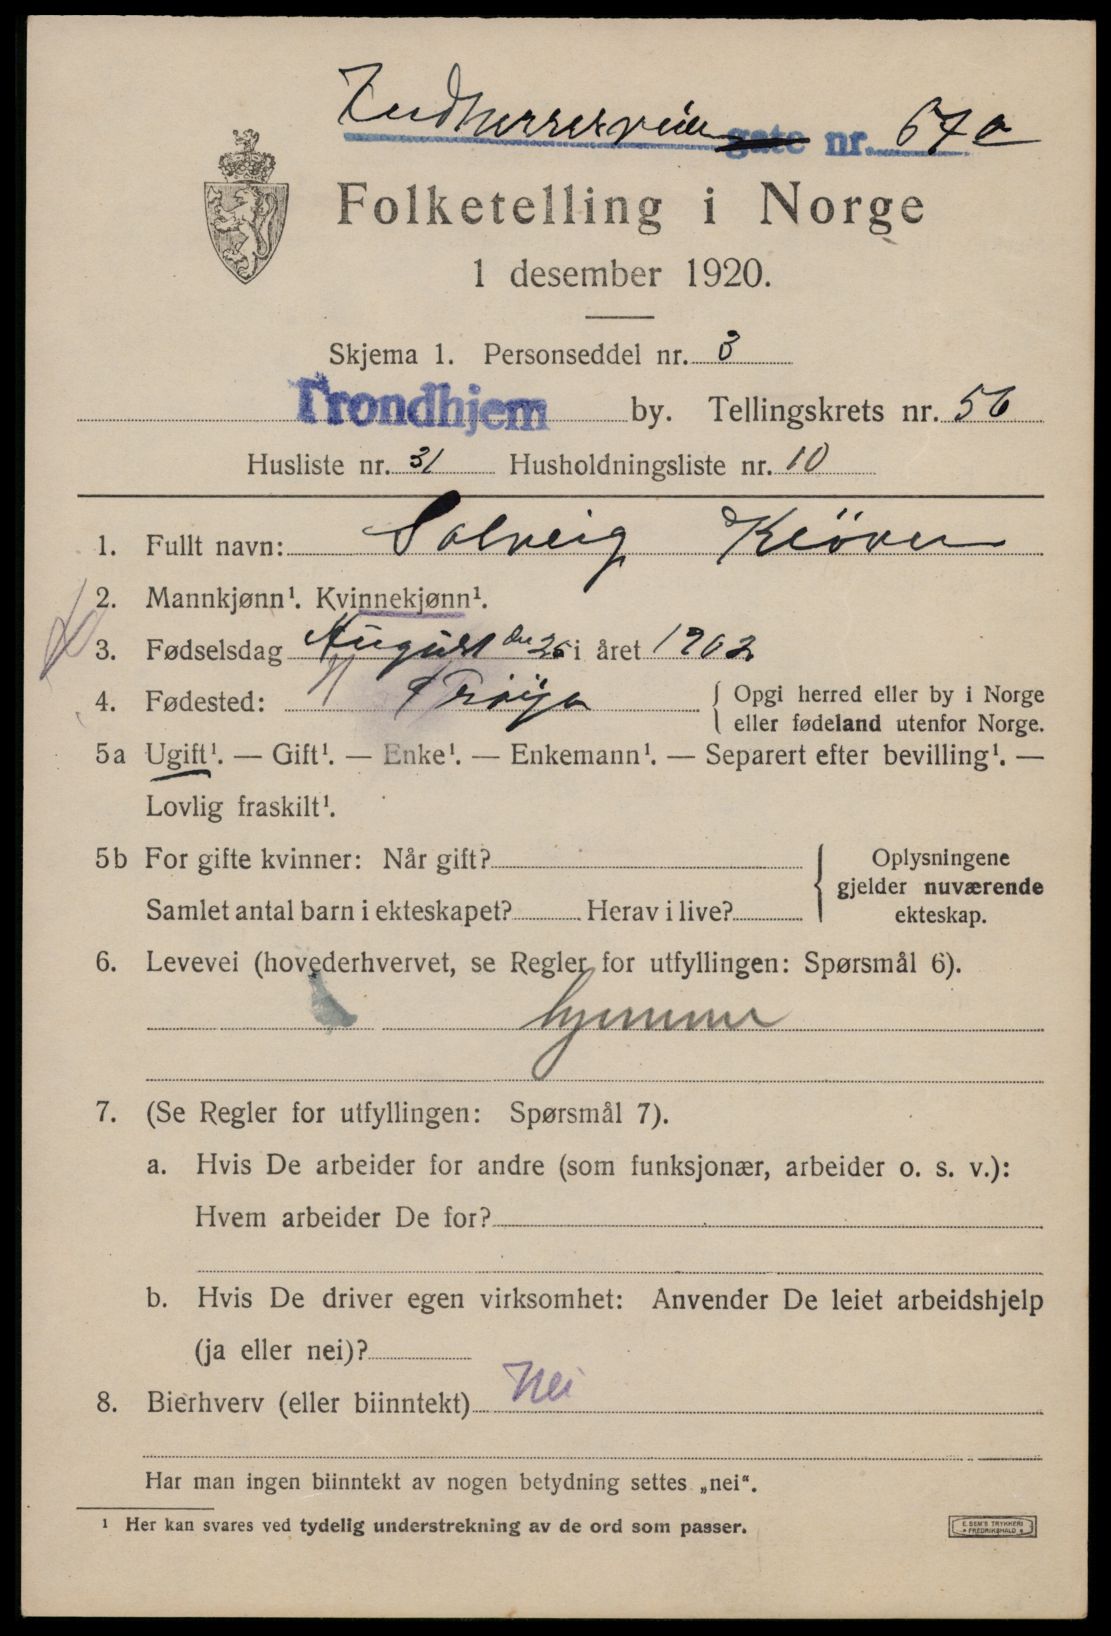 Indherresveien gate nr. 67a
Folketelling i Norge
1 desember 1920.
Skjema 1. Personseddel nr. 3
Trondhjem by. Tellingskrets nr. 56
Husliste nr. 31 Husholdningsliste nr. 10
1. Fullt navn: Solveig Kløver
2. Mannkjønn¹. Kvinnekjønn¹.
3. Fødselsdag August den 26 i året 1902
4. Fødested: Frøya { Opgi herred eller by i Norge
eller fødeland utenfor Norge.
5a Ugift¹. — Gift¹. — Enke¹. — Enkemann¹. — Separert efter bevilling¹. —
Lovlig fraskilt¹.
5b For gifte kvinner: Når gift?
Samlet antal barn i ekteskapet? Herav i live?
Oplysningene
gjelder nuværende
ekteskap.
6. Levevei (hovederhvervet, se Regler for utfyllingen: Spørsmål 6).
hjemme
7. (Se Regler for utfyllingen: Spørsmål 7).
a. Hvis De arbeider for andre (som funksjonær, arbeider o. s. v.):
Hvem arbeider De for?
b. Hvis De driver egen virksomhet: Anvender De leiet arbeidshjelp
(ja eller nei)?
8. Bierhverv (eller biinntekt) Nei
Har man ingen biinntekt av nogen betydning settes „nei“.
¹ Her kan svares ved tydelig understrekning av de ord som passer.
E. SEM'S TRYKKERI
FREDRIKSHALD